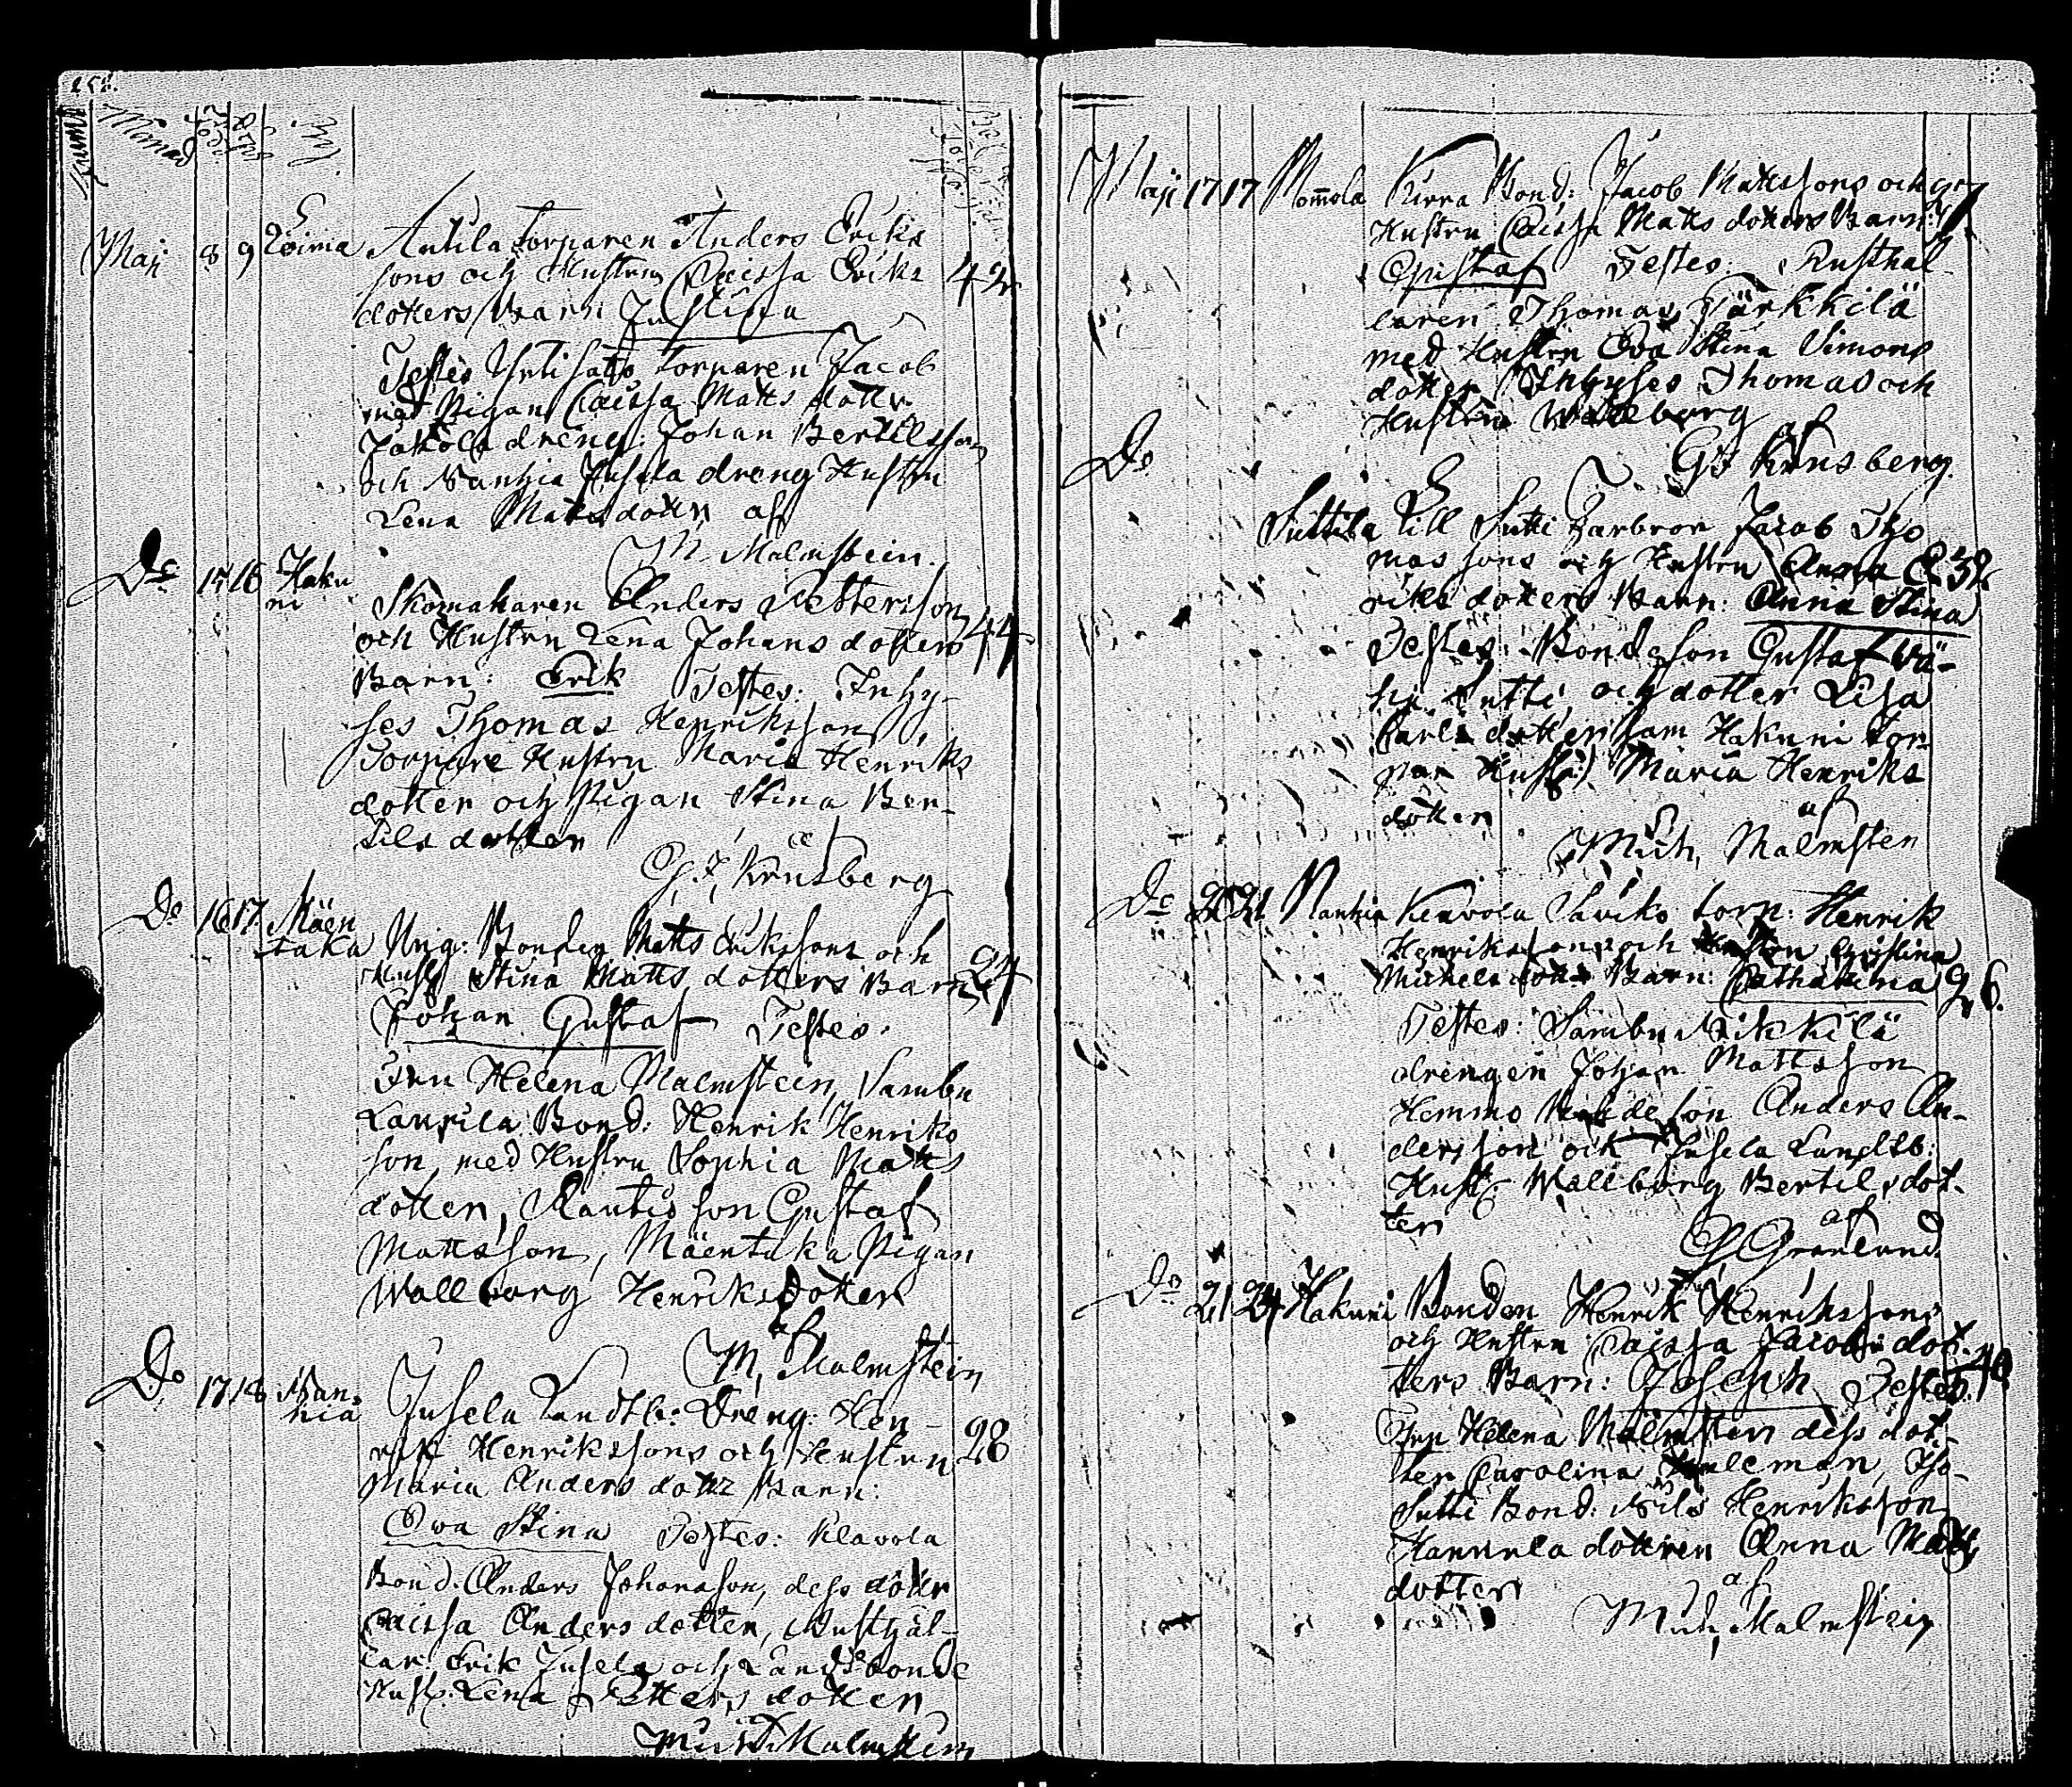 Maji 8 9 Loima Anttila torparen Anders Eriks
sons och Hustrun Caissa Eriks 42
dotters Barn: Justina
Testes torparen Jacob
med Pigan Caissa Matts dotter
dreng: Johan Bertilsson
och Nankia Jusela dreng Hustru
Lena Matts dotter af
M. Malmstein.
Do 15 16 Haku
ni Skomakaren Anders Pettersson
och Hustru Lena Johans dotters 44
Barn: Erik Testes: Inhy-
ses Thomas Henriksson,
Torpare Hustru Maria Henriks
dotter och Pigan Stina Ber-
tils dotter
af
G. F. Krusberg
Do 16 17 Mäen
taka Ung: Bonden Matts Erikssons och
Hust: Stina Matts dotters Barn 24
Johan Gustaf Testes:
Fru Helena Malmstein, Sambu
Laurila Bond: Henrik Henriks
son, med Hustru Sophia Matts
dotter, son Gustaf
Mattsson, Mäentaka Pigan
Wallborg Henriksdotter
af
M. Malmstein
Do 17 18 Nan-
kia Jusela Landtb: Dreng: Hen-
rik Henrikssons och Hustrun 28
Maria Anders dottr Barn:
Ewa Stina Testes: Klavola
Bond. Anders Johansson, dess dottr
Caissa Anders dotter, Rusthål-
lar. Erik Jusela och Landtbonde
Hust: Lena Petters dotter
Mich. Malmstein
Maji 17 17 Mommola Kirra Bond: Jacob Mattssons och
Hustru Caissa Matts dotters Barn:
Gustaf Testes: Rusthål-
laren Thomas Pärkkilä
med Hustru Eva Stina Simons
dotter Inhyses Thomas och
Hustru Wallborg
af
G F Krusberg.
Do
Suttila Lill Sutti Jacob Tho
mas sons och Hustru Anna E 32
riks dotters Barn: Anna Stina
Testes: Bondeson Gustaf
Sutti, och dotter Lisa
Carls dotter sam Hakuni tor
par Hustr: Maria Henriks
dotter
af
Mich, Malmsten
Do 20 21 Nankia Klavola torp: Henrik
Henrikssons och Hustrun Christina
Michels dottr Barn: Catharina 26.
Testes: Sambu Mikkilä
drengen Johan Mattsson
Hemmo Bondeson Anders An-
dersson och Jusela Landtb:
Hust: Wallborg Bertils dot-
ter
af
G Granlund.
Do 21 24 Hakuni Bonden Henrik Henrikssons
och Hustru Caissa Jacobs dot-
ters Barn: Joseph Testes: 40
Fru Helena Malmsten dess dot-
ter Carolina Iso-
Sutti Bond: Nils Henriksson
Hannula dottren Anna Matts
dotter
af
Mich, Malmstein